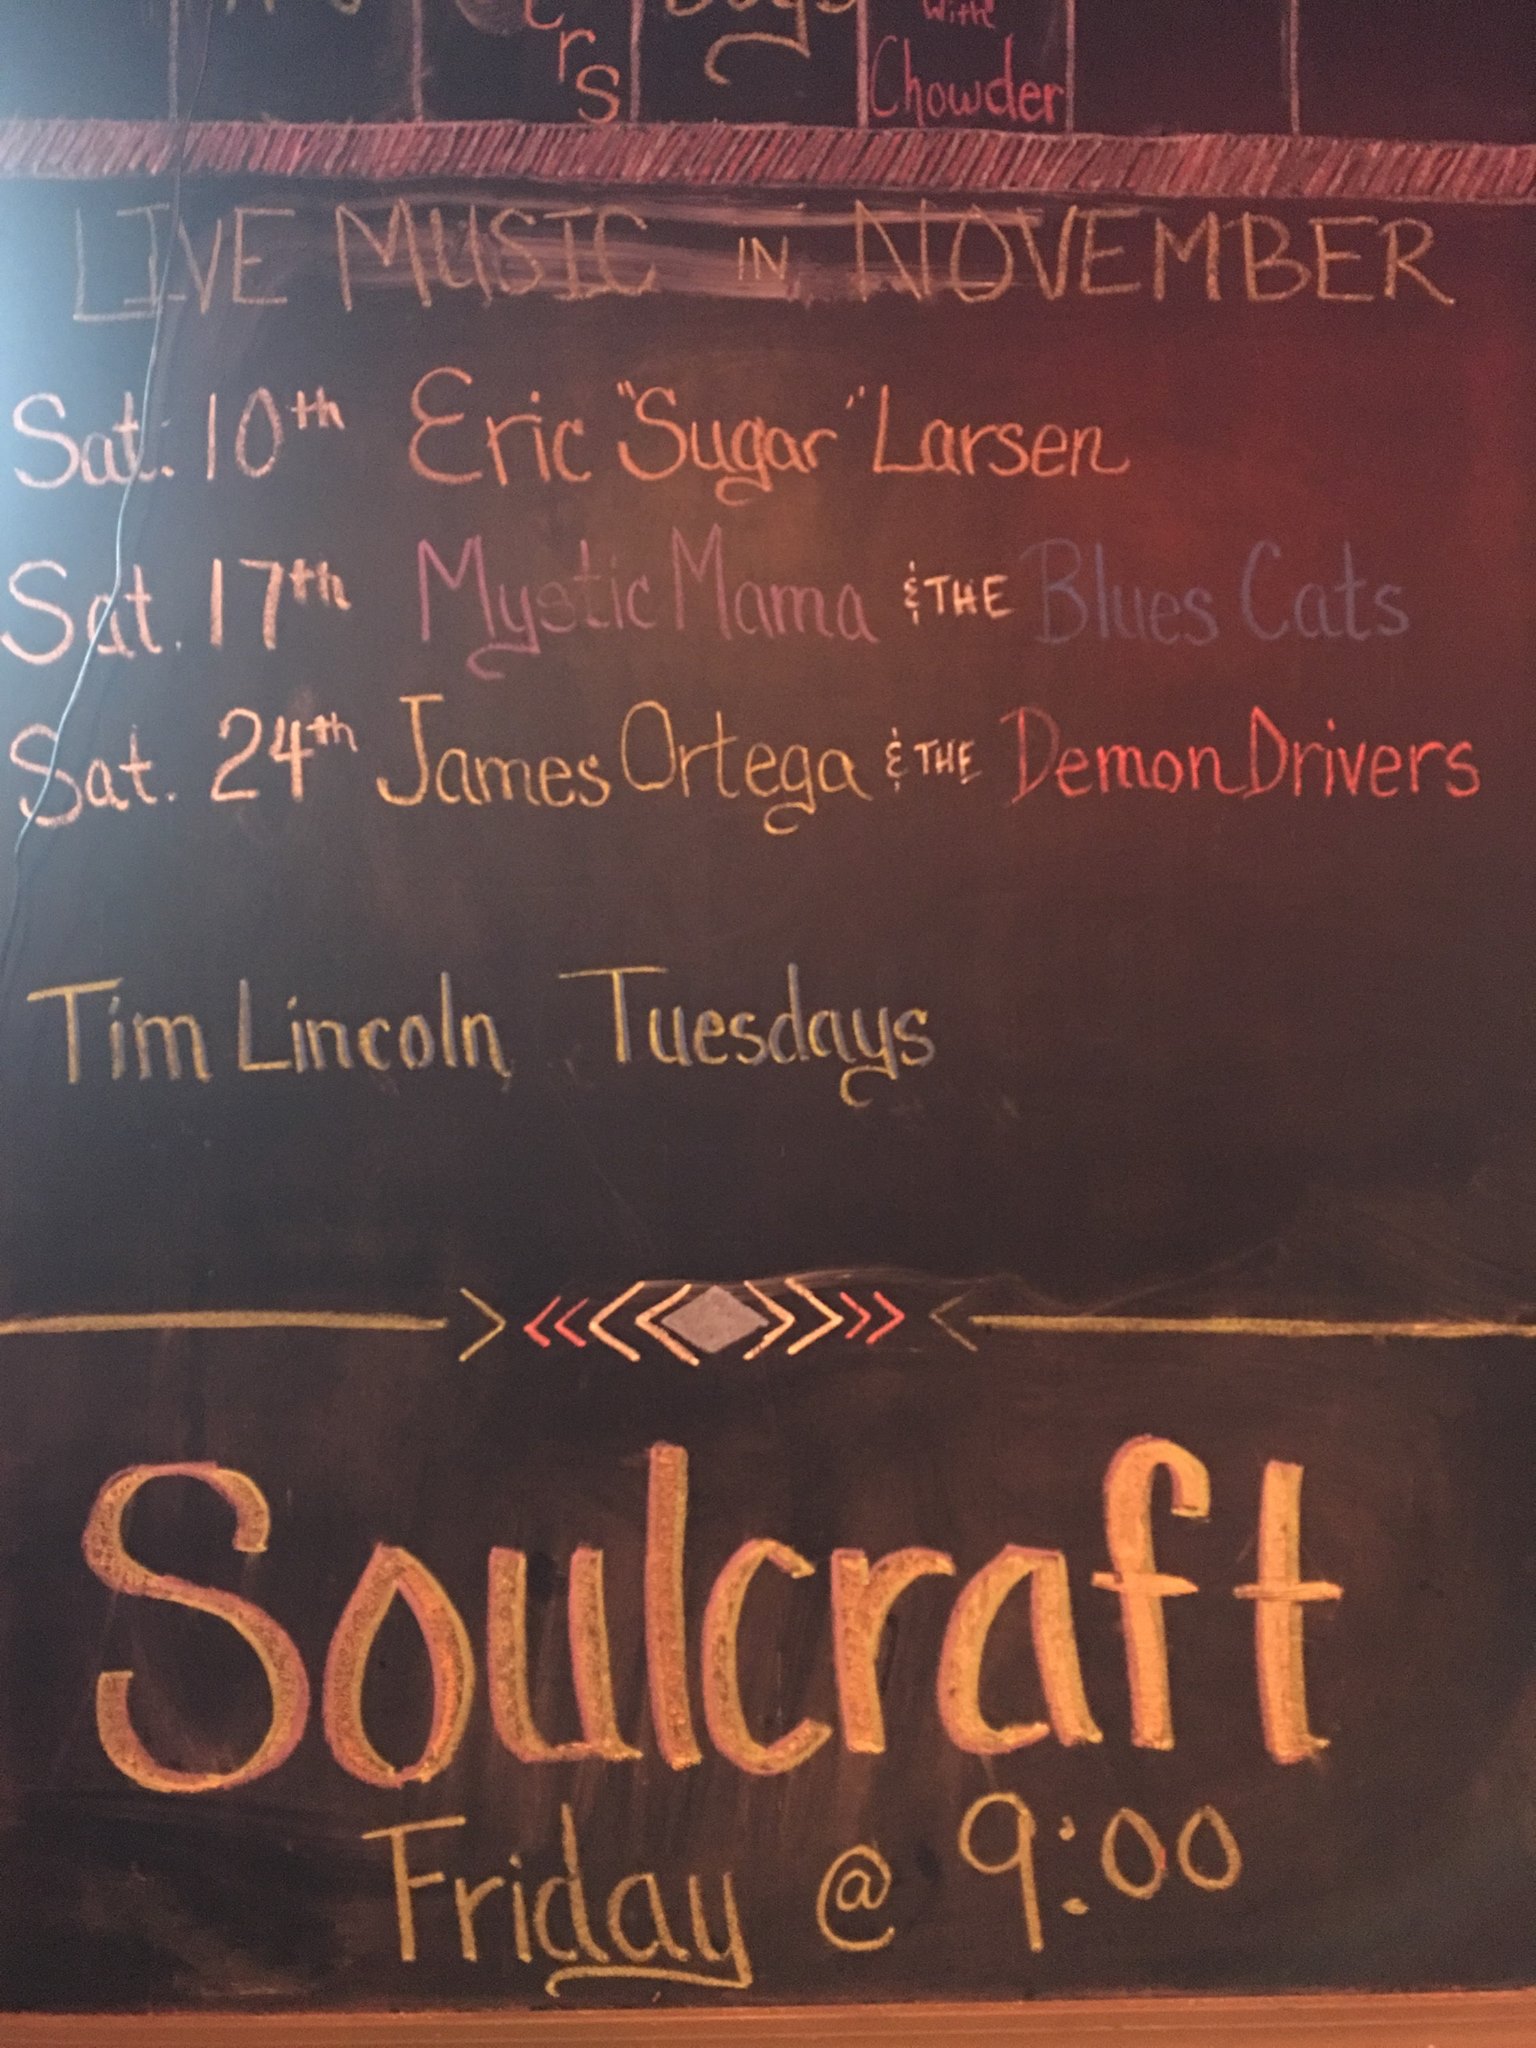 with
ers
Chowder
LIVE MUSIC IN NOVEMBER
Sat. 10th Eric "Sugar" Larsen
Sat. 17th Mystic Mama & THE Blues Cats
Sat. 24th James Ortega & THE Demon Drivers
Tim Lincoln Tuesdays
Soulcraft
Friday @ 9:00